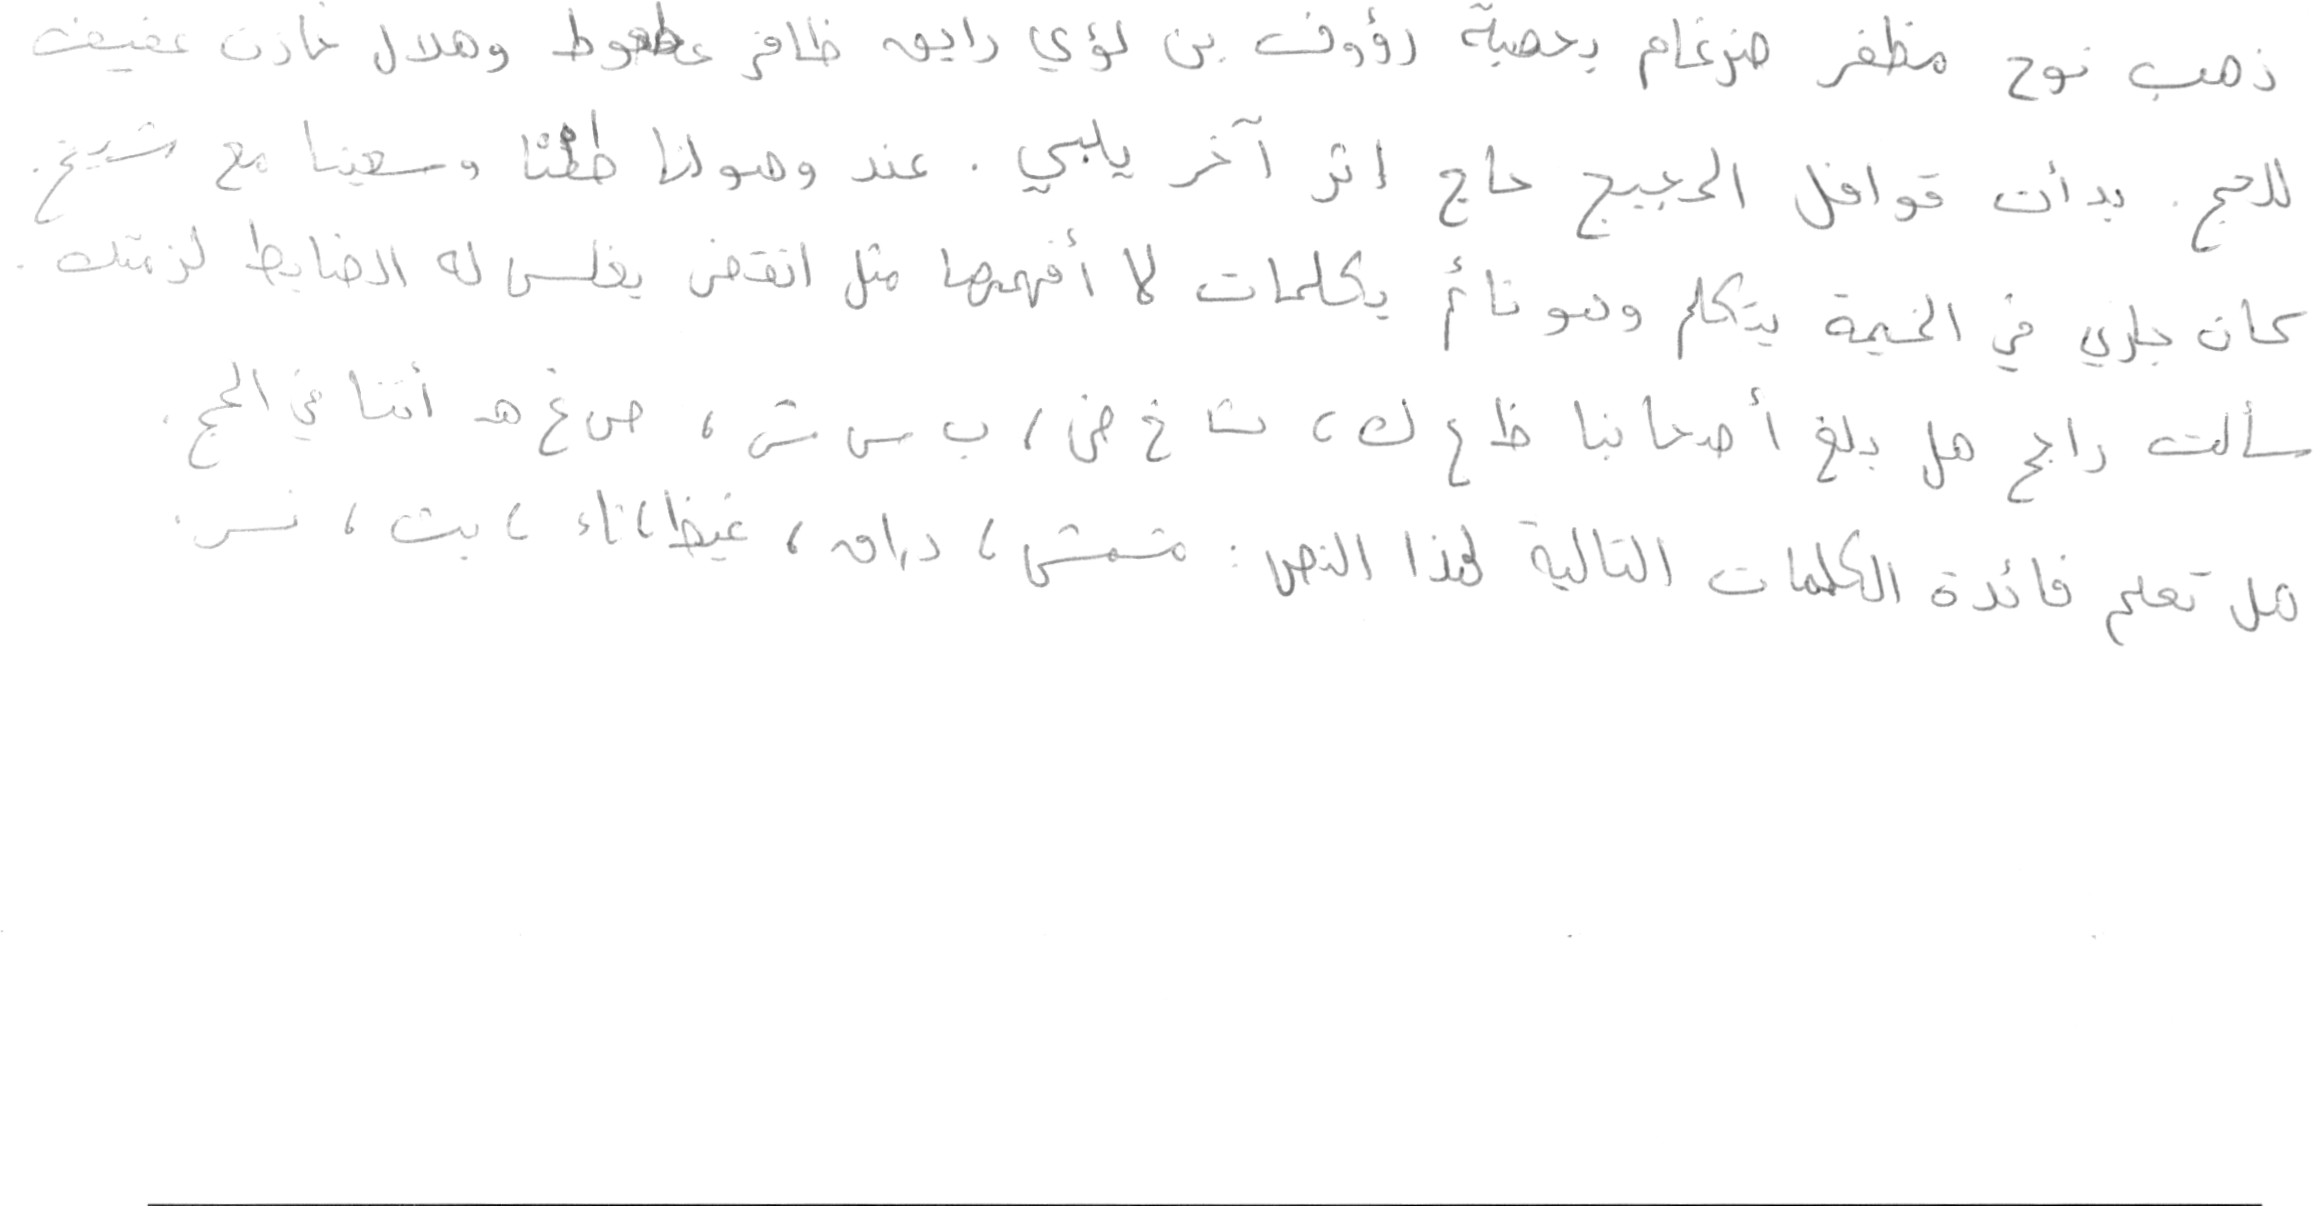 ذهب نوح مظفر ضرغام بحصبة رؤوف بن لؤي رايق ظافر عطعوط وهلال خازن عفيف
للحج. بدأت قوافل الحجيج حاج إثر آخر يلبي. عند وصولنا طفنا وسعينا مع شيخ.
كان جاري في الخيمة يتكلم وهو نائم بكلمات لا أفهمها مثل انقض يغلس له الضابط لزمتك.
سألت راجح هل بلغ أصحابنا ظ ع ك، ث خ ض، ب س ش، ص غ هـ أننا في الحج.
هل تعلم فائدة الكلمات التالية لهذا النص: مشمش، دراق، غيظ، ثاء، بث، نسر.